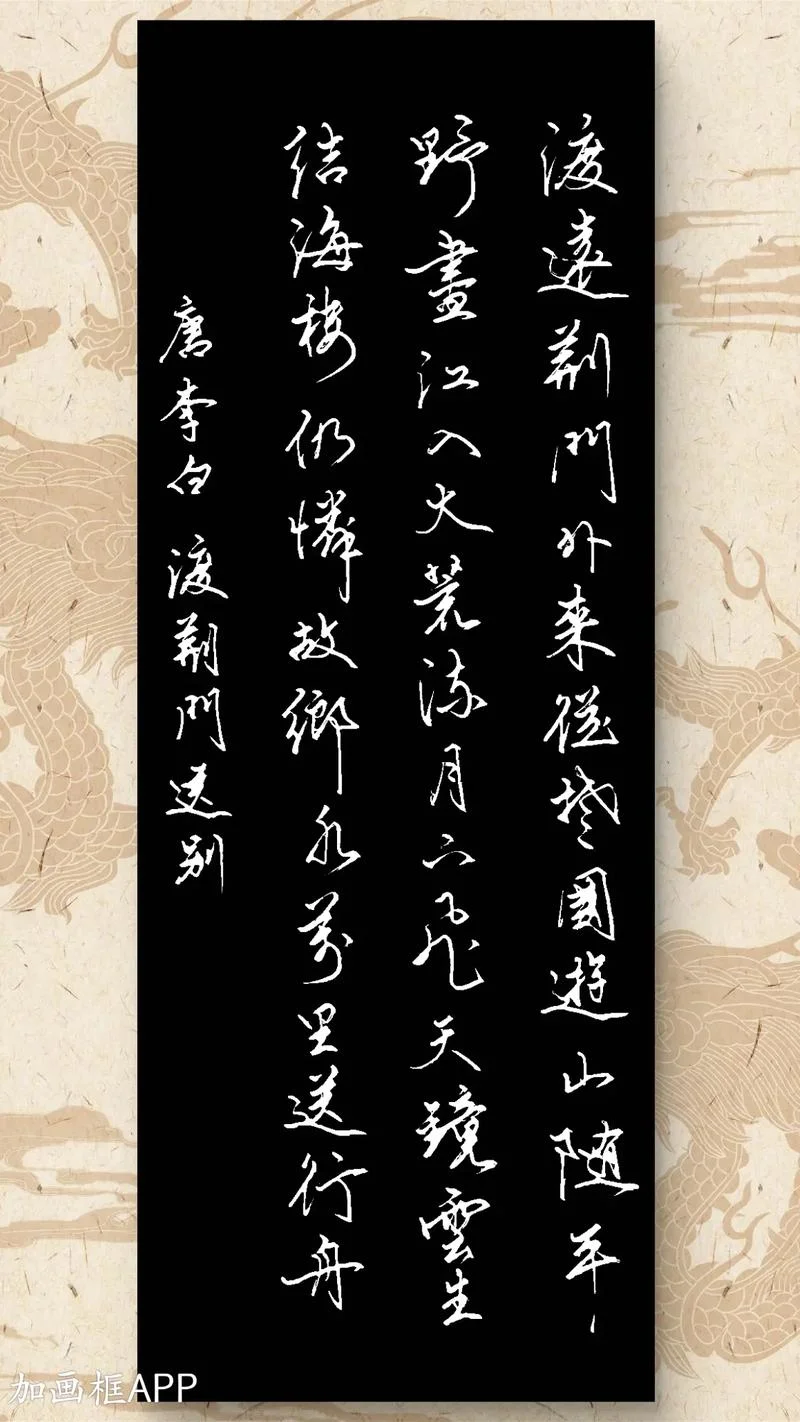 渡遠荊門外來從楚國遊山隨平
野盡江入大荒流月下飛天鏡雲生
結海樓仍憐故鄉水萬里送行舟
唐李白 渡荊門送别
加画框APP